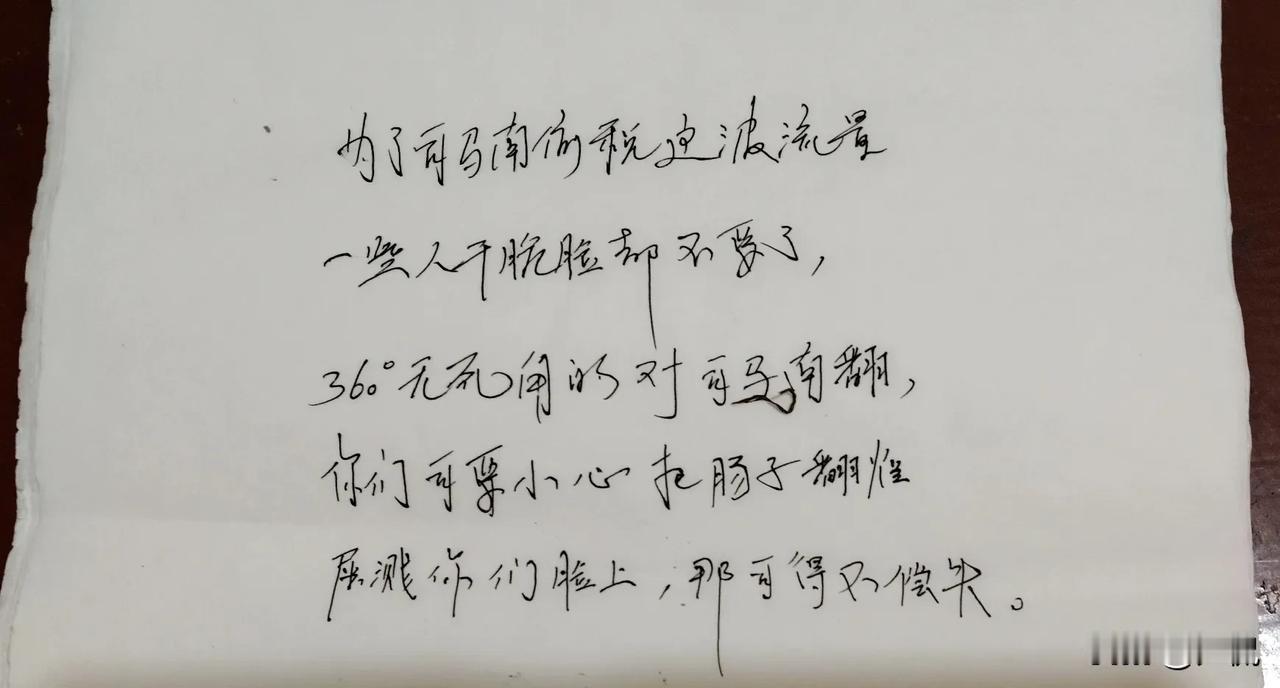 为了司马南偷税这波流量
一些人干脆脸都不要了，
360°无死角的对司马南翻，
你们可要小心把肠子翻烂
屎溅你们脸上，那可得不偿失。